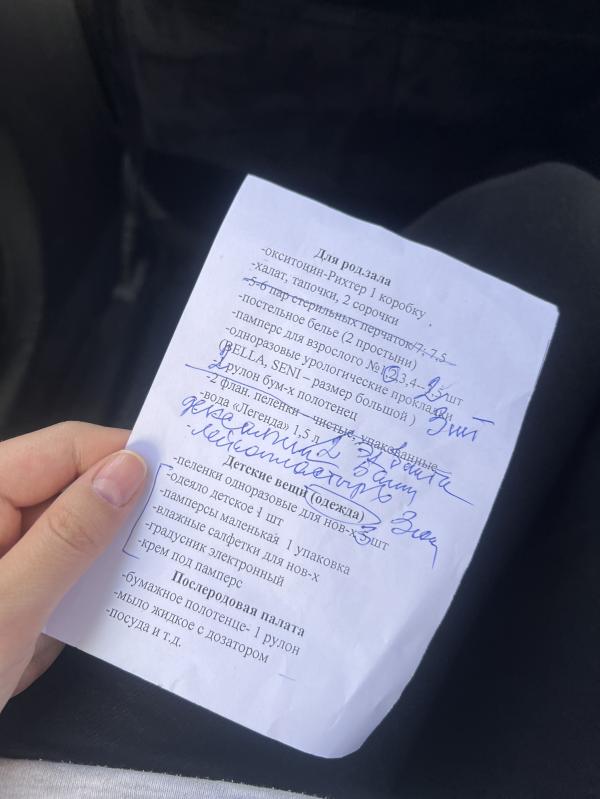 Для род.зала
-окситоцин-Рихтер 1 коробку
-халат, тапочки, 2 сорочки
-5-6 пар стерильных перчаток 7; 7,5
-постельное белье (2 простыни)
-памперс для взрослого №1,2,3,4- 2 шт
-одноразовые урологические прокладки
(BELLA, SENI – размер большой ) 3 шт
-2 рулон бум-х полотенец
-2 флан. пеленки – чистые, упакованные
-вода «Легенда» 1,5 л
-лейкопластырь
Детские вещи (одежда)
-пеленки одноразовые для нов-х 3 шт
-одеяло детское 1 шт
-памперсы маленькая 1 упаковка
-влажные салфетки для нов-х
-градусник электронный
-крем под памперс
Послеродовая палата
-бумажное полотенце- 1 рулон
-мыло жидкое с дозатором
-посуда и т.д.